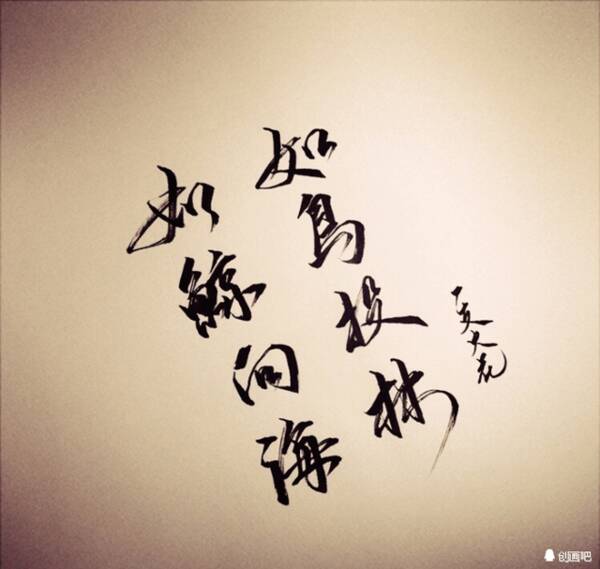 如鲸向海
如鸟投林
创画吧